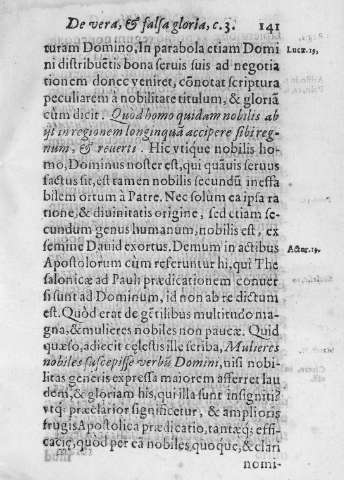 De vera, & falsa gloria, c. 3. 141
turam Domino, In parabola etiam Domi Lucæ. 19,
ni distribuẽtis bona seruis suis ad negotia
tionem donec veniret, cõnotat scriptura
peculiarẽ à nobilitate titulum, & gloriã
cùm dicit. Quòd homo quidam nobilis ab
ijt in regionem longinquã accipere sibi reg
num, & reuerti. Hic vtique nobilis ho-
mo, Dominus noster est, qui quãuis seruus
factus sit, est tamen nobilis secundũ ineffa
bilem ortum à Patre. Nec solùm ea ipsa ra
tione, & diuinitatis origine, sed etiam se-
cundum genus humanum, nobilis est, ex
semine Dauid exortus. Demum in actibus Actor. 19.
Apostolorum cùm referuntur hi, qui The
salonicæ ad Pauli prædicationem conuer
si sunt ad Dominum, id non ab re dictum
est. Quòd erat de gẽtilibus multitudo ma-
gna, & mulieres nobiles non paucæ. Quid
quæso, adiecit celestis ille scriba, Mulieres
nobiles suscepisse verbũ Domini, nisi nobi-
litas generis expressa maiorem asferret lau
dem, & gloriam his, qui illa sunt insigniti?
vtq; præclarior significetur, & amplioris
frugis Apostolica prædicatio, tantæq; effi-
caciæ, quòd per eã nobiles quoque, & clari
nomi-